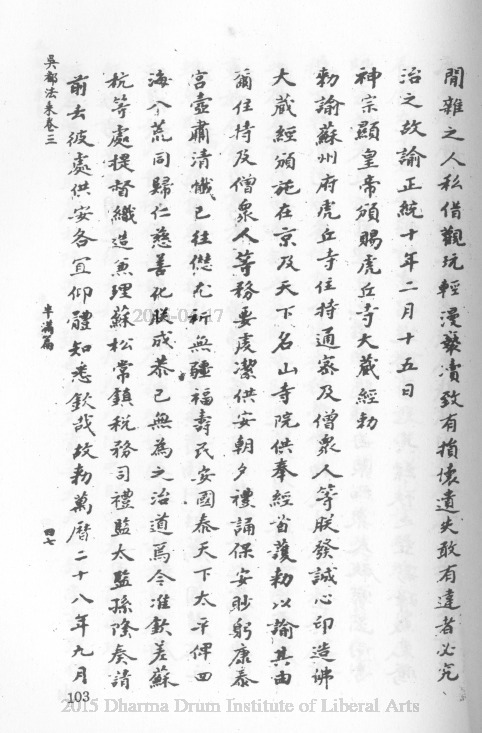 閒雜之人私借觀玩輕漫褻瀆致有損壞遺失敢有違者必究
治之故諭正統十年二月十五日
神宗顯皇帝頒賜虎丘寺大藏經勑
勑諭蘇州府虎丘寺住持通密及僧衆人等朕發誠心印造佛
大藏經頒施在京及天下名山寺院供奉經首護勑以諭其由
爾住持及僧衆人等務要虔潔供安朝夕禮誦保安眇躬康泰
宮壼肅清懺已往愆尤祈無疆福壽民安國泰天下太平俾四
海八荒同歸仁慈善化朕成恭己無為之治道焉今准欽差蘇
杭等處提督織造兼理蘇松常鎮稅務司禮監太監孫隆奏請
前去彼處供安各宜仰體知悉欽哉故勑萬曆二十八年九月
吳都法乘卷三
半滿篇
四七
103
2015 Dharma Drum Institute of Liberal Arts